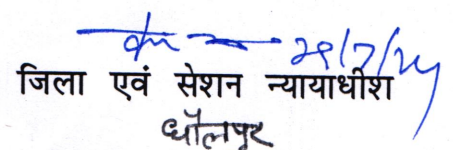 29/7/24
जिला एवं सेशन न्यायाधीश
धौलपुर